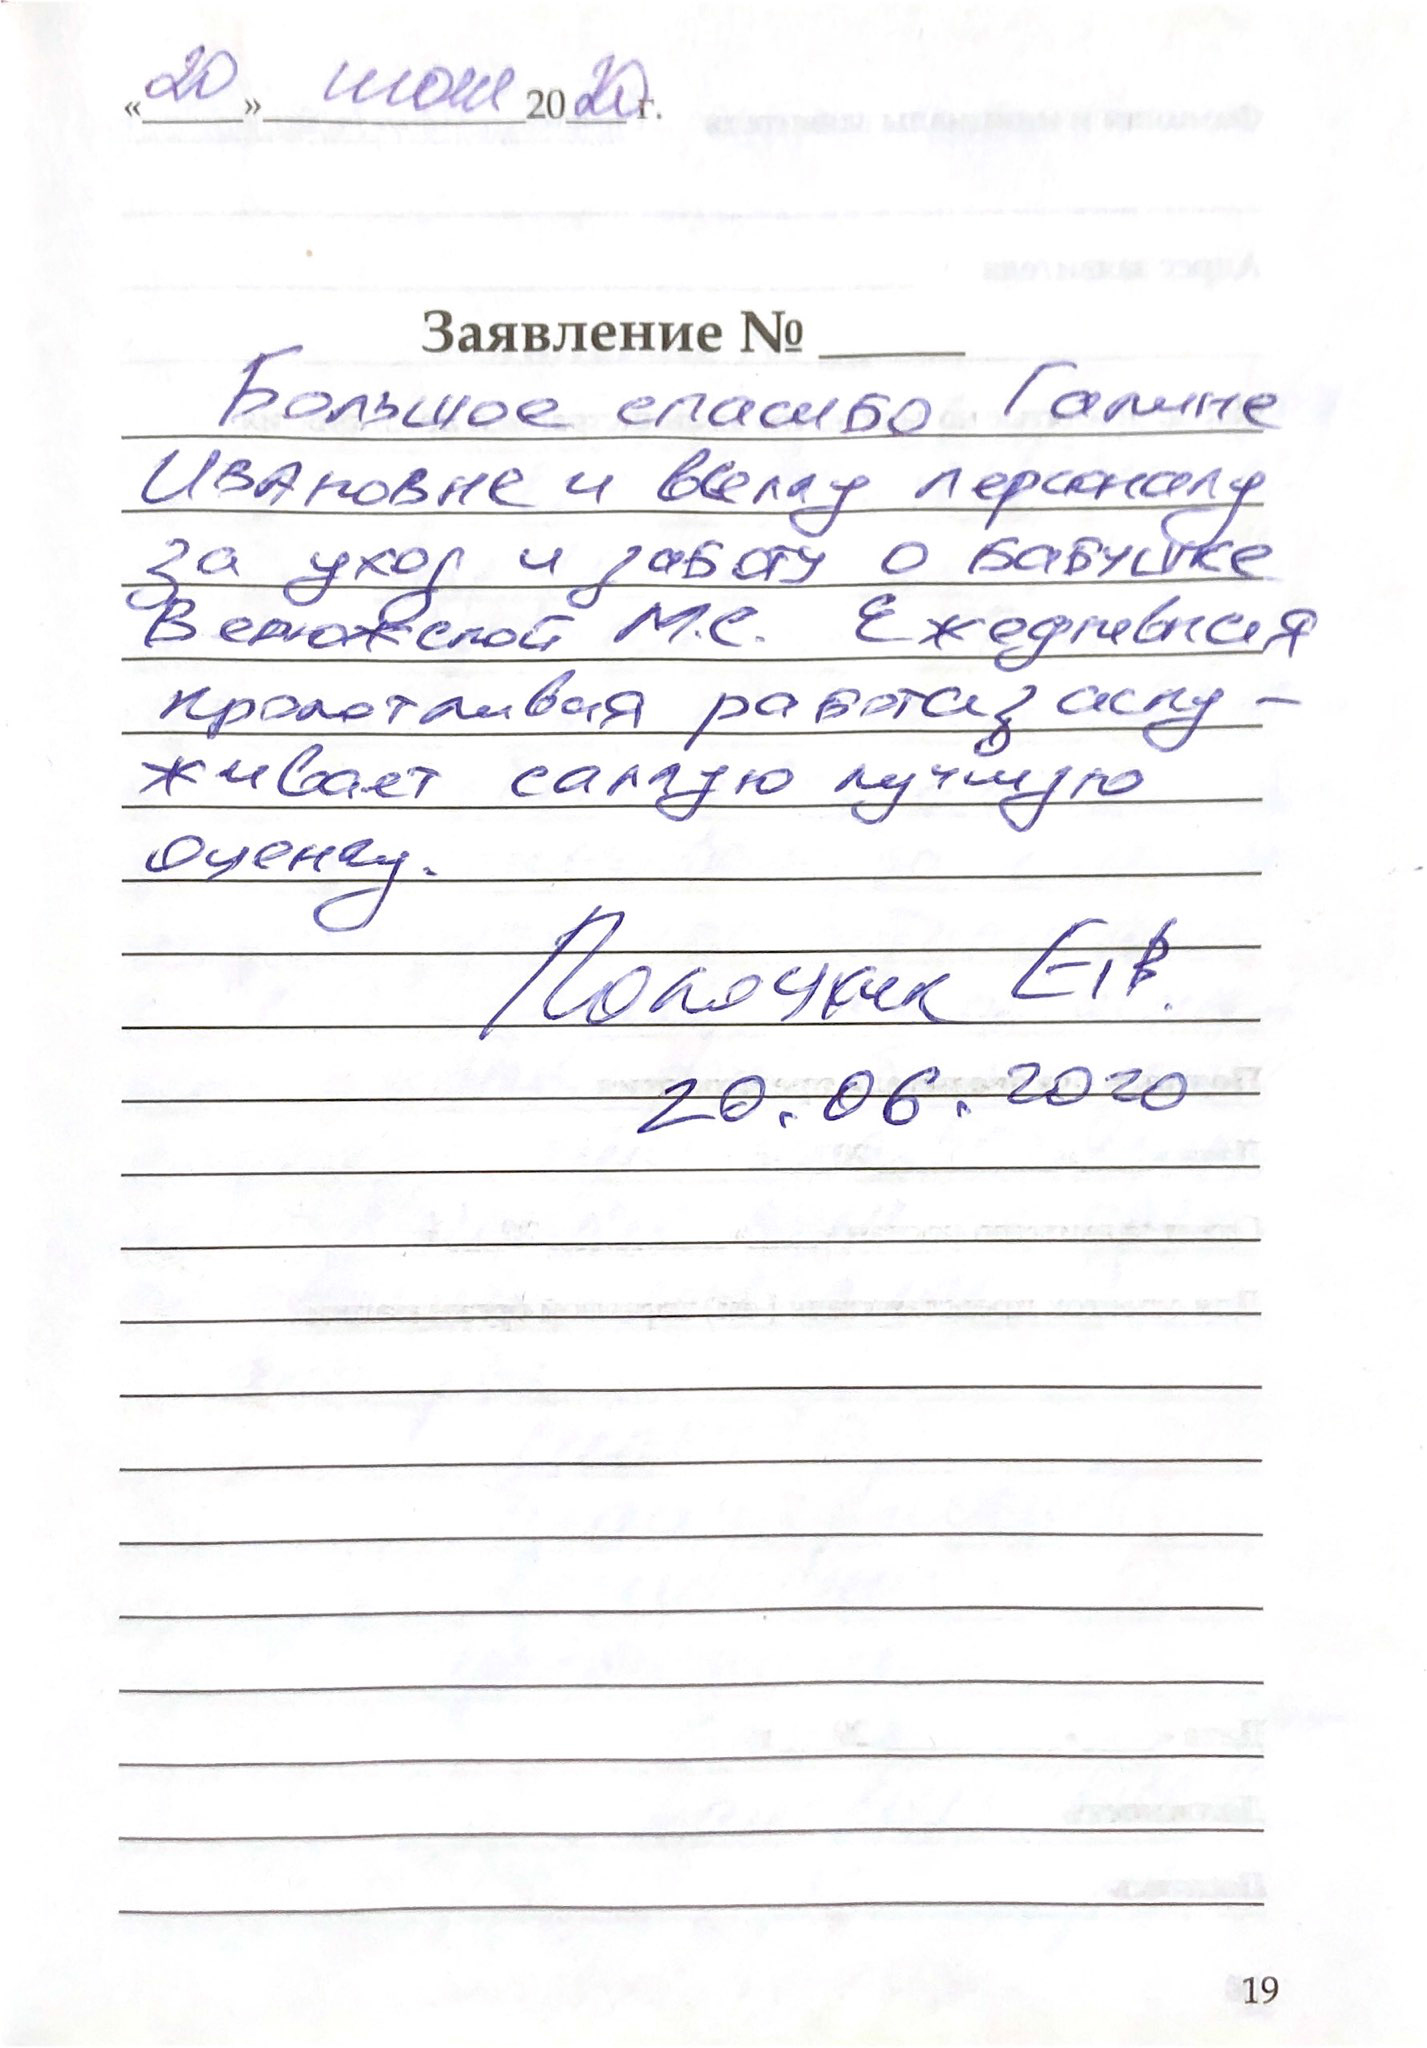 «20» июня 2020 г.
Заявление № ____
Большое спасибо Галине
Ивановне и всему персоналу
за уход и заботу о бабушке
М.С. Ежедневная
кропотливая работа заслу-
живает самую лучшую
оценку.
Е.В.
20.06.2020
19